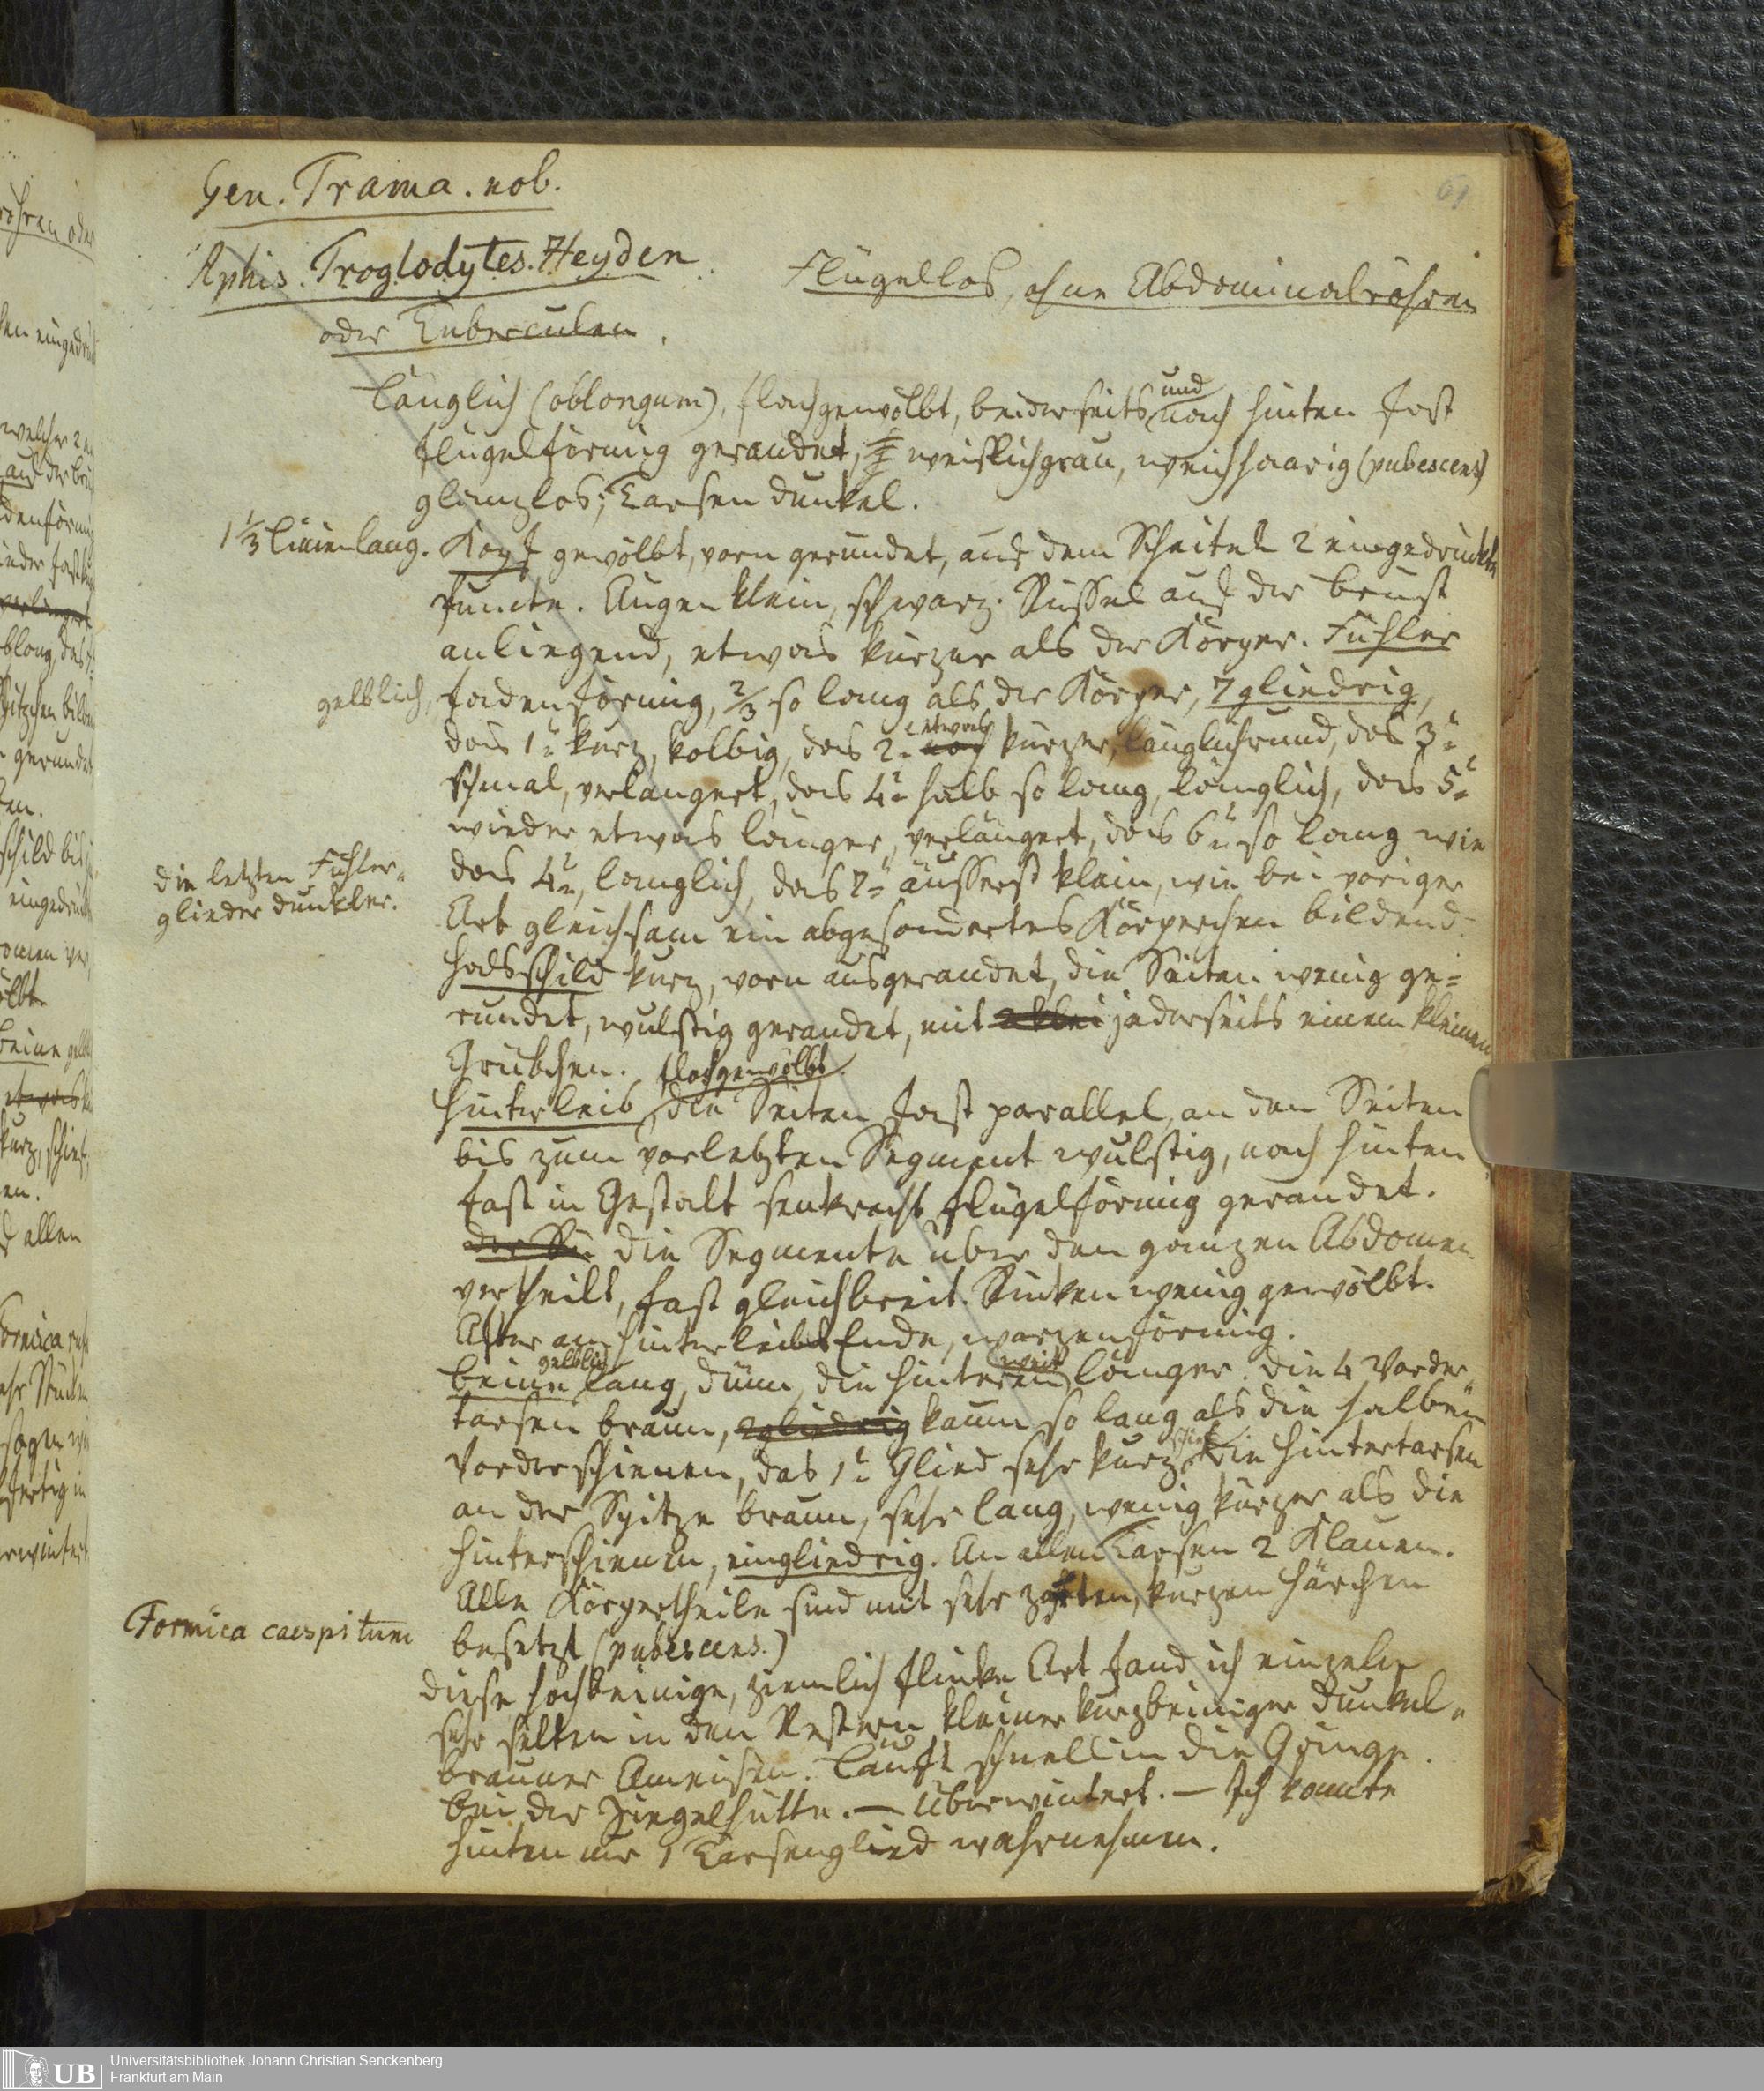 Gen. Trama. nob.
61
Aphis. Troglodytes. Heyden
Flügellos, ohne Abdominalröhren
oder Tuberculen.
Länglich (oblongum), flachgewölbt, beiderseits und nach hinten fast
flügelförmig gerandet, weißlichgrau, weichhaarig (pubescens)
glanzlos; Tarsen dunkel.
1 1/3 Linien lang. Kopf gewölbt, vorn gerundet, auf dem Scheitel 2 eingedrückte
Puncte. Augen klein, schwarz. Rüssel auf der Brust
anliegend, etwas kürzer als der Körper. Fühler
gelblich, fadenförmig, 2/3 so lang als der Körper, 7gliedrig,
das 1te kurz, kolbig, das 2te noch etwas kürzer, länglichrund, das 3te
schmal, verlängert, das 4te halb so lang, länglich, das 5te
wieder etwas länger, verlängert, das 6te so lang wie
die letzten Fühler-
glieder dunkler.
das 4te, länglich, das 7te äusserst klein, wie bei voriger
Art gleichsam ein abgesondertes Körperchen bildend.
Halsschild kurz, vorn ausgerandet, die Seiten wenig ge-
rundet, wulstig gerandet, mit 2 klei jederseits einem kleinen
Grübchen.
Hinterleib flachgewölbt, die Seiten fast parallel, an den Seiten
bis zum vorletzten Segment wulstig, nach hinten
fast in Gestalt senkrecht flügelförmig gerandet.
die Segmente über den ganzen Abdomen
vertheilt, fast gleichbreit. Rücken wenig gewölbt.
After am Hinterleibs Ende, warzenförmig.
Beine gelblich lang, dünn, die hinteren weit länger. Die 4 Vorder-
tarsen braun, 2gliedrig kaum so lang als die halben
Vorderschienen, das 1te Glied sehr kurz, schief, die Hintertarsen
an der Spitze braun, sehr lang, wenig kürzer als die
Hinterschienen, eingliedrig. An allen Tarsen 2 Klauen.
Alle Körpertheile sind mit sehr zarten, kurzen Härchen
besetzt (pubescens.)
Formica caespitum
Diese hochbeinige, ziemlich flinke Art fand ich einzeln
sehr selten in den Nestern kleiner kurzbeiniger dunkel-
brauner Ameisen. Läuft schnell in die Gänge.
bei der Ziegelhütte. — Überwintert. — Ich konnte
hinten nur 1 Tarsenglied wahrnehmen.
UB
Universitätsbibliothek Johann Christian Senckenberg
Frankfurt am Main